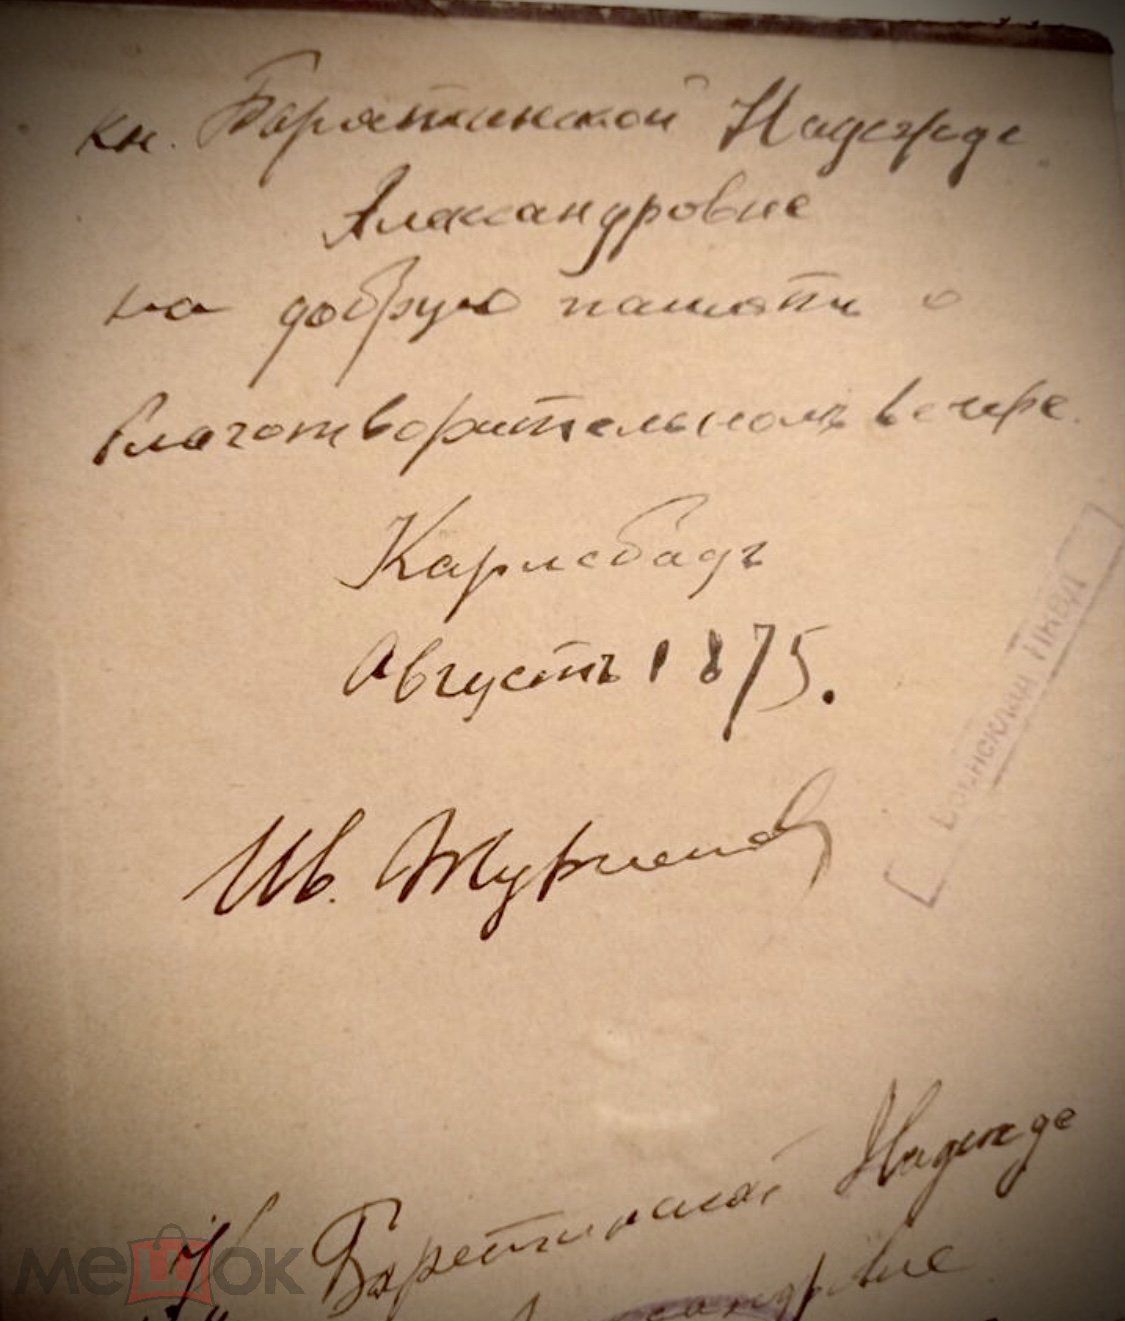 кн. Барятинской Надежде
Александровне
на добрую память о
благотворительномъ вечере.
Карлсбадъ
Августъ 1875.
Ив.
НКВД
Барятинской Надежде
мешок